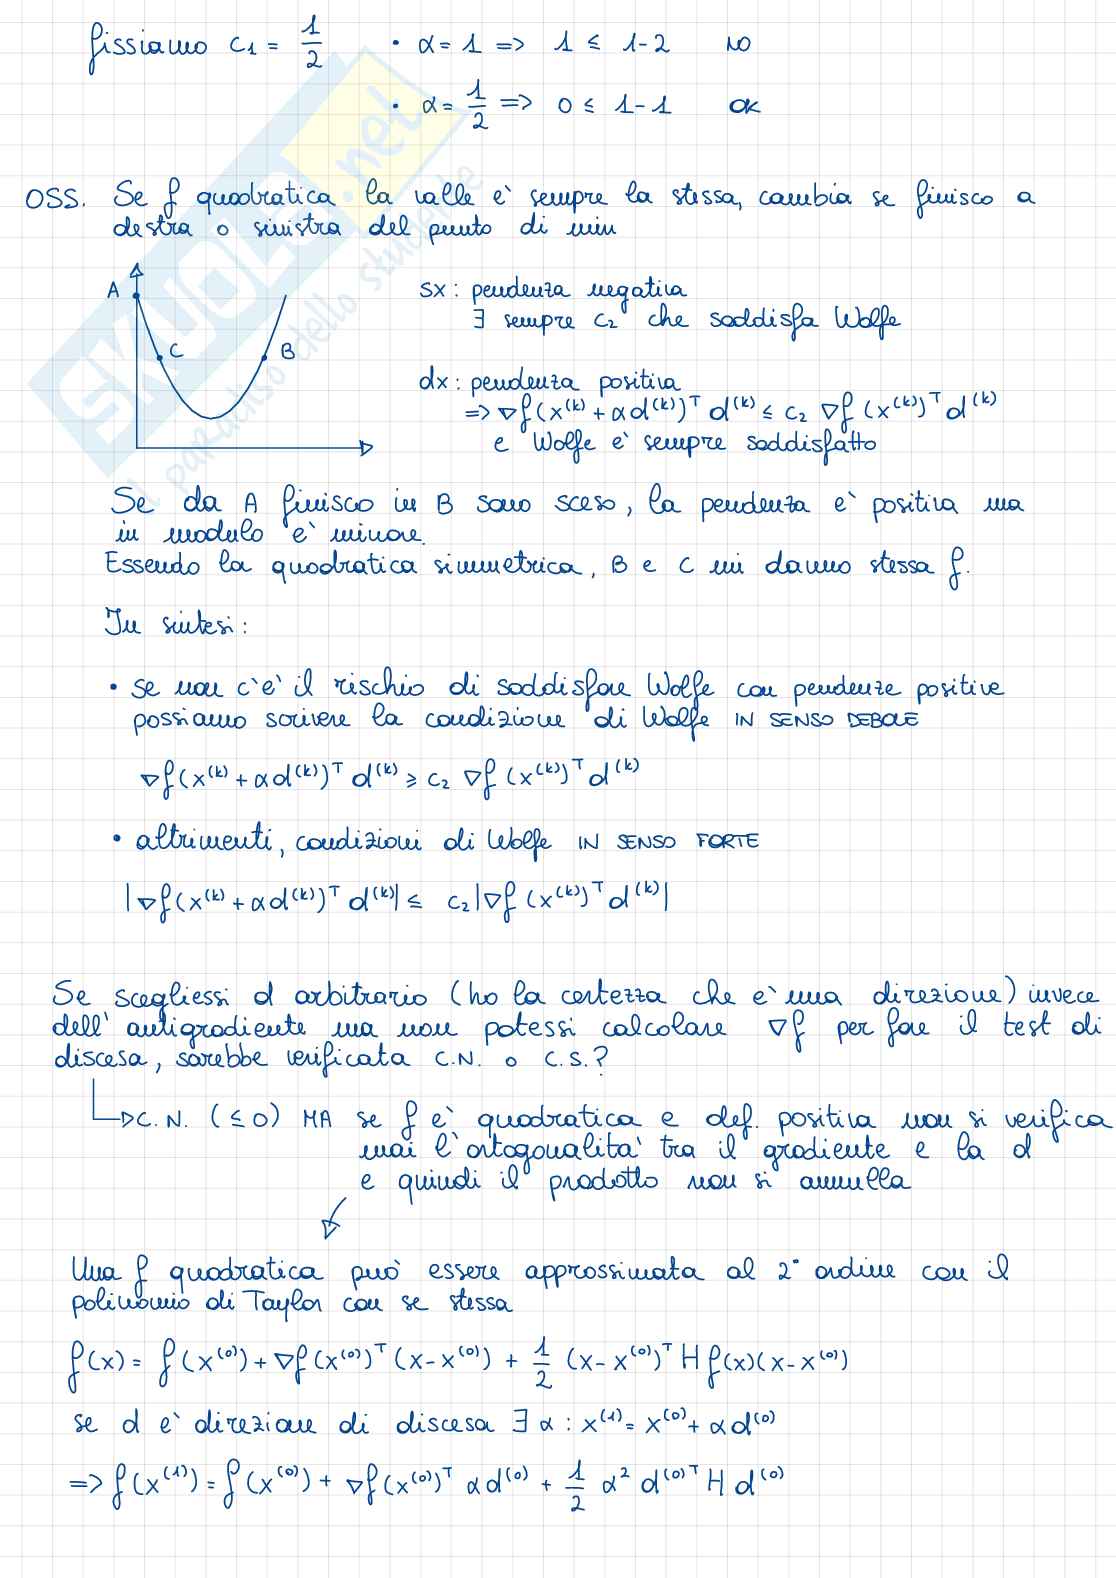 fissiamo c₁ = 1/2 • α = 1 => 1 ≤ 1-2 NO
• α = 1/2 => 0 ≤ 1-1 OK
OSS. Se f quadratica la valle è sempre la stessa, cambia se finisco a
destra o sinistra del punto di min
A
C
B
sx: pendenza negativa
∃ sempre c₂ che soddisfa Wolfe
dx: pendenza positiva
=> ∇f(x⁽ᵏ⁾ + αd⁽ᵏ⁾)ᵀ d⁽ᵏ⁾ ≤ c₂ ∇f(x⁽ᵏ⁾)ᵀ d⁽ᵏ⁾
e Wolfe è sempre soddisfatto
Se da A finisco in B sono sceso, la pendenza è positiva ma
in modulo è minore.
Essendo la quadratica simmetrica, B e C mi danno stessa f.
In sintesi:
• se non c'è il rischio di soddisfare Wolfe con pendenze positive
possiamo scrivere la condizione di Wolfe IN SENSO DEBOLE
∇f(x⁽ᵏ⁾ + αd⁽ᵏ⁾)ᵀ d⁽ᵏ⁾ ≥ c₂ ∇f(x⁽ᵏ⁾)ᵀ d⁽ᵏ⁾
• altrimenti, condizioni di Wolfe IN SENSO FORTE
|∇f(x⁽ᵏ⁾ + αd⁽ᵏ⁾)ᵀ d⁽ᵏ⁾| ≤ c₂|∇f(x⁽ᵏ⁾)ᵀ d⁽ᵏ⁾|
Se scegliessi d arbitrario (ho la certezza che è una direzione) invece
dell'antigradiente ma non potessi calcolare ∇f per fare il test di
discesa, sarebbe verificata C.N. o C.S.?
C.N. (≤0) MA se f è quadratica e def. positiva non si verifica
mai l'ortogonalità tra il gradiente e la d
e quindi il prodotto non si annulla
Una f quadratica può essere approssimata al 2° ordine con il
polinomio di Taylor con se stessa
f(x) = f(x⁽⁰⁾) + ∇f(x⁽⁰⁾)ᵀ (x-x⁽⁰⁾) + 1/2 (x-x⁽⁰⁾)ᵀ Hf(x)(x-x⁽⁰⁾)
se d è direzione di discesa ∃ α : x⁽¹⁾ = x⁽⁰⁾ + αd⁽⁰⁾
=> f(x⁽¹⁾) = f(x⁽⁰⁾) + ∇f(x⁽⁰⁾)ᵀ αd⁽⁰⁾ + 1/2 α² d⁽⁰⁾ᵀ H d⁽⁰⁾
SKUOLA.net
il paradiso dello studente